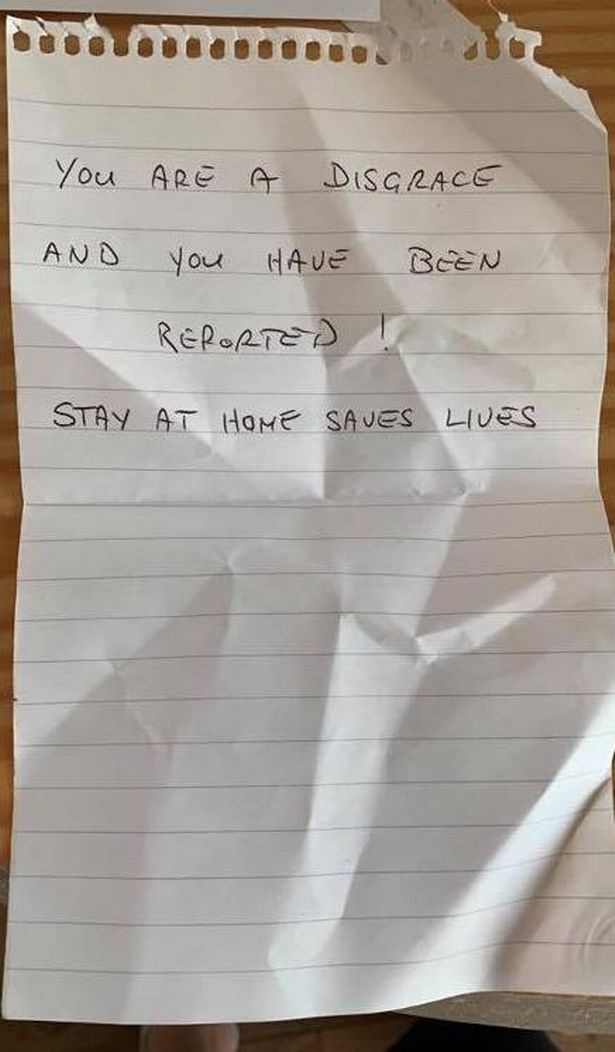 YOU ARE A DISGRACE
AND YOU HAVE BEEN
REPORTED !
STAY AT HOME SAVES LIVES